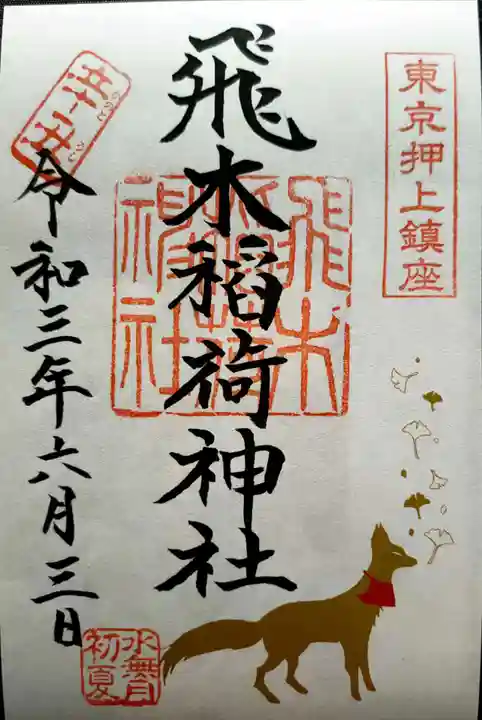 東京押上鎮座
飛木稲荷神社
飛木
神社
辛丑
令和三年六月三日
水無月
初夏